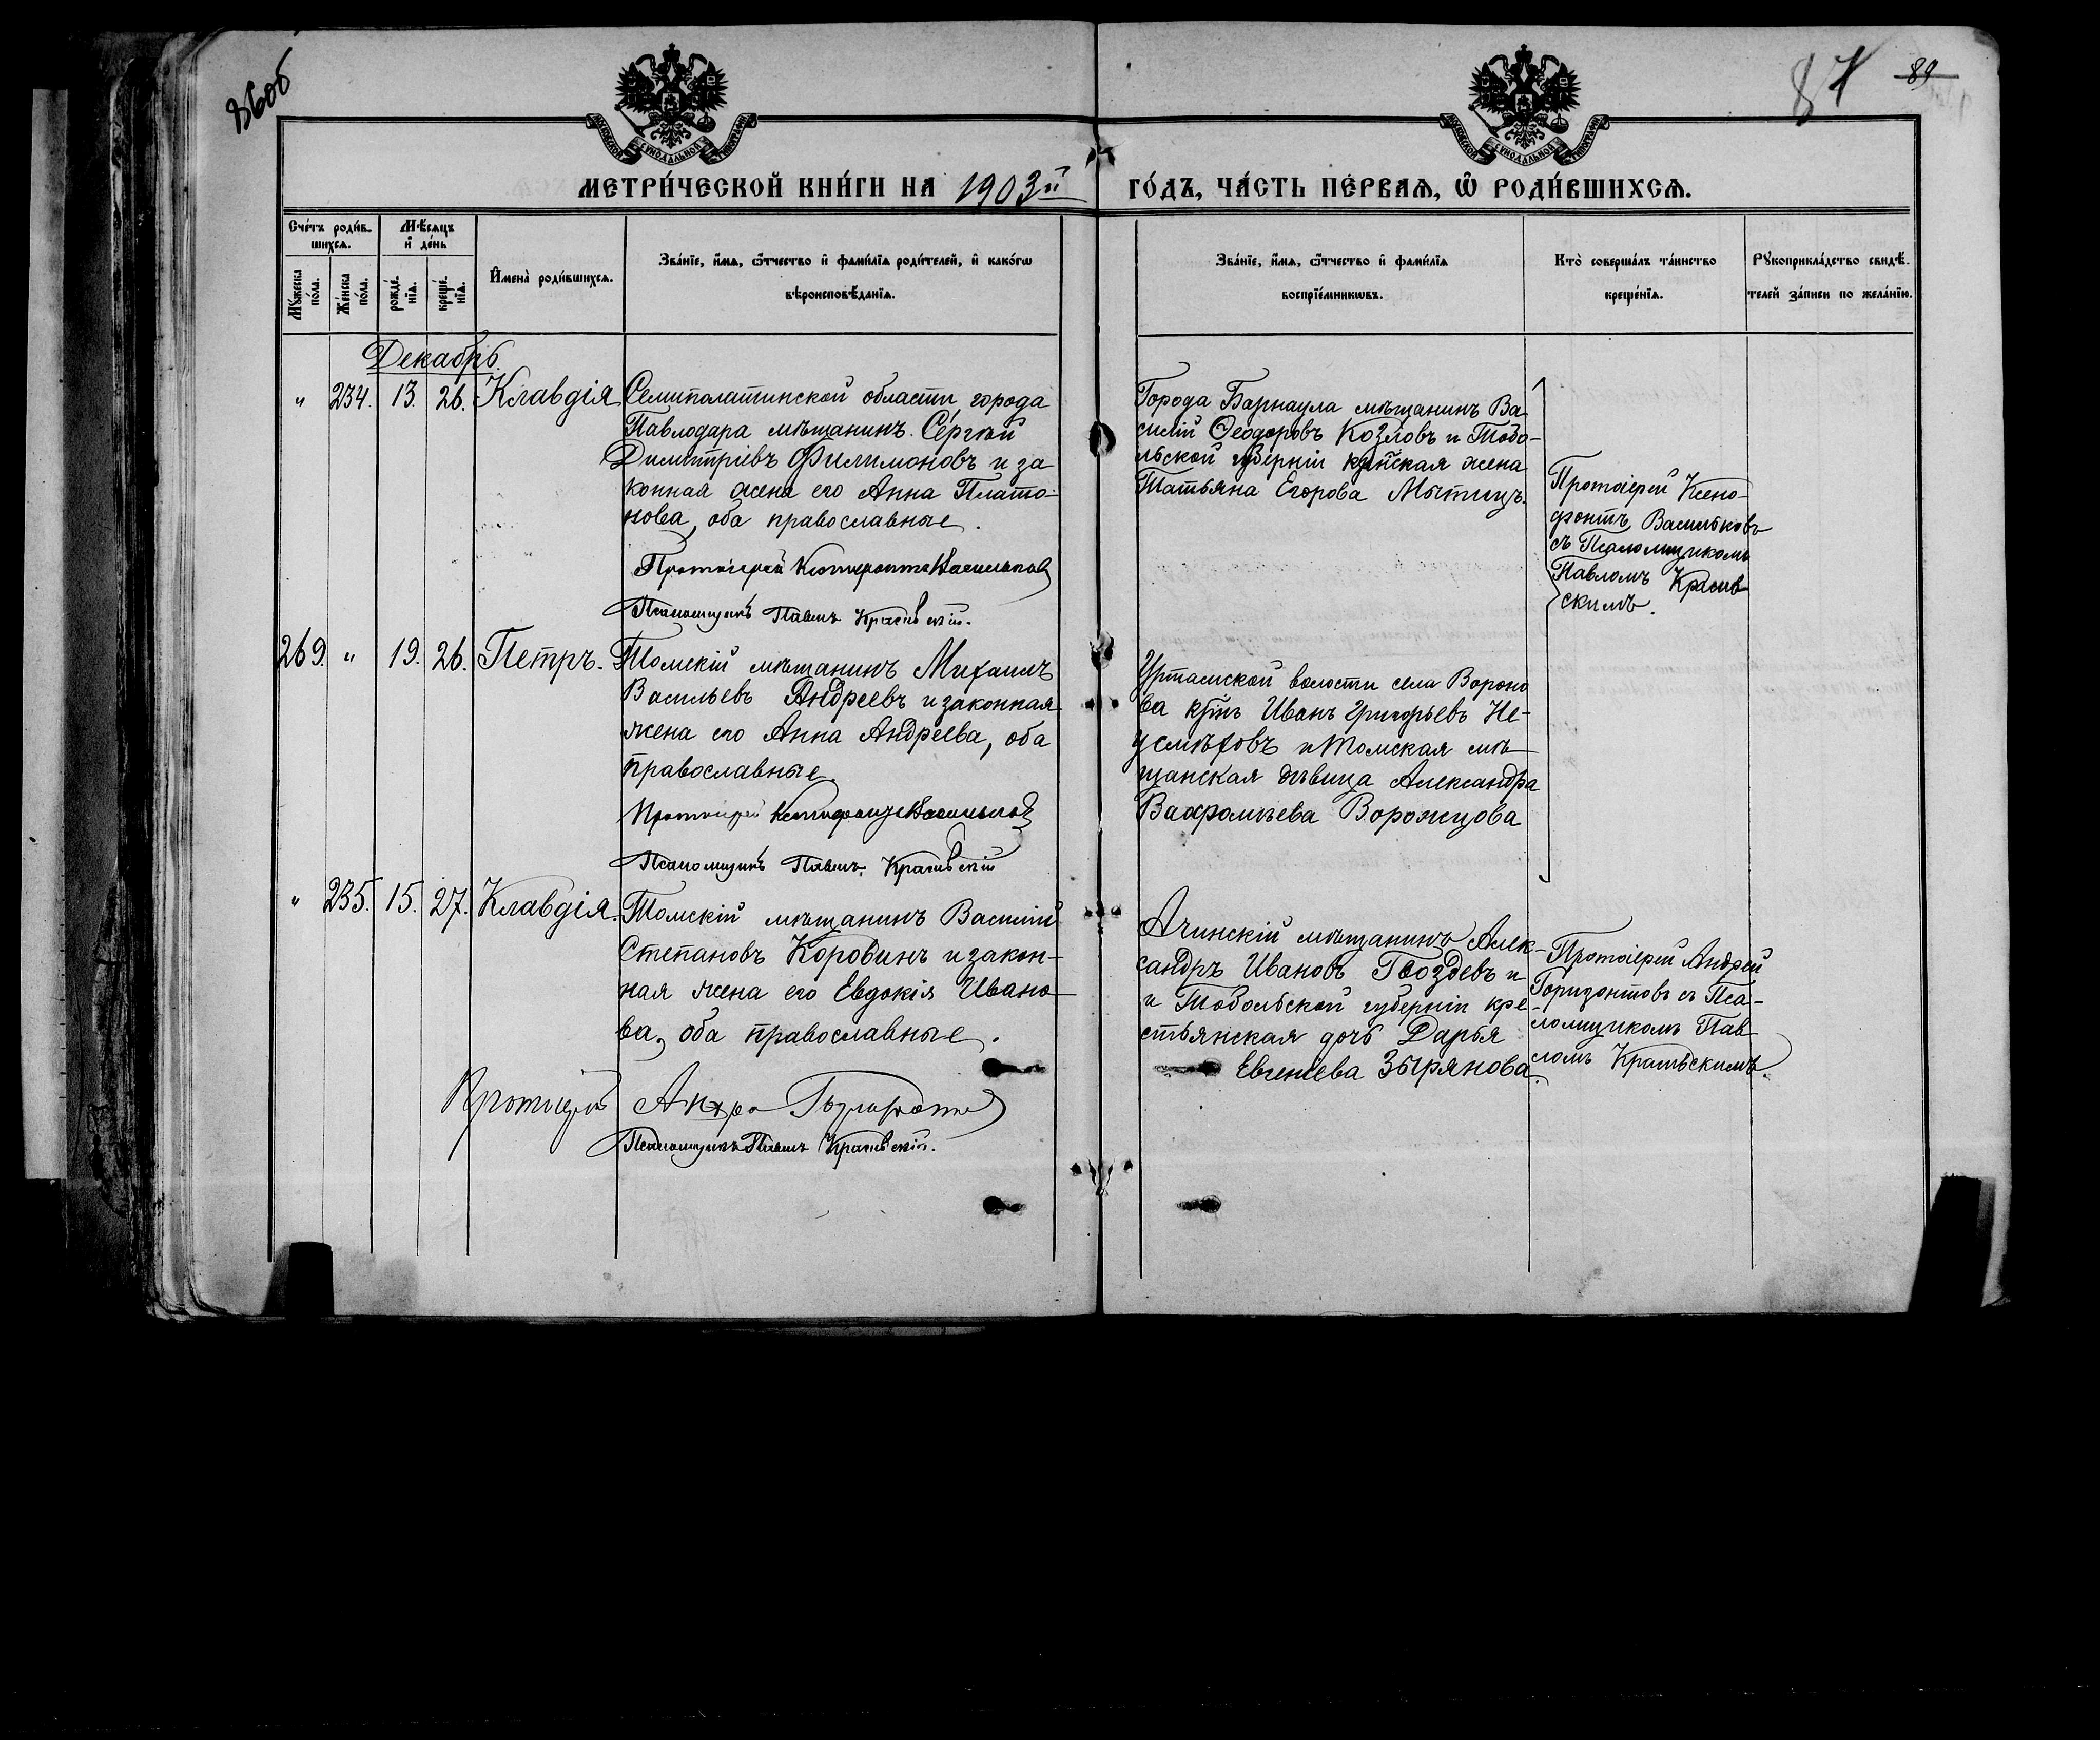 86об
87
89
МЕТРИ́ЧЕСКОЙ КНИ́ГИ НА 1903й ГО́ДЪ, ЧА́СТЬ ПЕ́РВАЯ, Ѿ РОДИ́ВШИХСЯ.
Сче́тъ роди́в-
шихся.
Мѣ́сяцъ
и҆ де́нь
Мꙋ́жеска
по́ла.
Же́нска
по́ла.
рожде́-
нїя.
креще́-
нїя.
И҆мена̀ роди́вшихся.
Зва́нїе, и҆́мя, ѻ҆́тчество и҆ фами́лїя роди́телей, и҆ како́гѡ
вѣроисповѣ́данїя.
Зва́нїе, и҆́мя, ѻ҆́тчество и҆ фами́лїя
воспрїе́мникѡвъ.
Кто̀ соверша́лъ та́инство
креще́нїя.
Рꙋкоприкла́дство свидѣ́-
телей за́писи по жела́нїю.
Декабрь.
" 234. 13. 26. Клавдія
Семипалатинской области города
Павлодара мѣщанинъ Сергѣй
Димитріевъ Филимоновъ и за
конная жена его Анна Плато-
нова, оба православные.
Протоіерей Ксенофонтъ Васильковъ
Псаломщикъ Павелъ Красивскій.
Города Барнаула мѣщанинъ Ва
силій Ѳеодоровъ Козловъ и Тобо-
льской губерніи кр̃нская жена
Татьяна Егорова Мытницъ.
Протоіерей Ксено-
фонтъ Васильковъ
съ Псаломщикомъ
Павломъ Красив
скимъ.
269. " 19. 26. Петръ.
Томскій мѣщанинъ Михаилъ
Васильевъ Андреевъ и законная
жена его Анна Андреева, оба
православные.
Протоіерей Ксенофонтъ Васильковъ
Псаломщикъ Павелъ Красивскій
Уртамской волости села Вороно
ва кр̃нъ Иванъ Григорьевъ Не-
усмѣховъ и Томская мѣ
щанская дѣвица Александра
Варфоломѣева Ворожцова
" 235. 15. 27. Клавдія.
Томскій мѣщанинъ Василій
Степановъ Коровинъ и закон-
ная жена его Евдокія Ивано
ва, оба православные.
Протоіерей Андрей Горизонтовъ
Псаломщикъ Павелъ Красивскій.
Ачинскій мѣщанинъ Алек-
сандръ Ивановъ Гвоздевъ и
и Тобольской губерніи кре-
стьянская дочь Дарья
Евгеніева Зырянова.
Протоіерей Андрей
Горизонтовъ съ Пса-
ломщикомъ Пав
ломъ Красивскимъ.